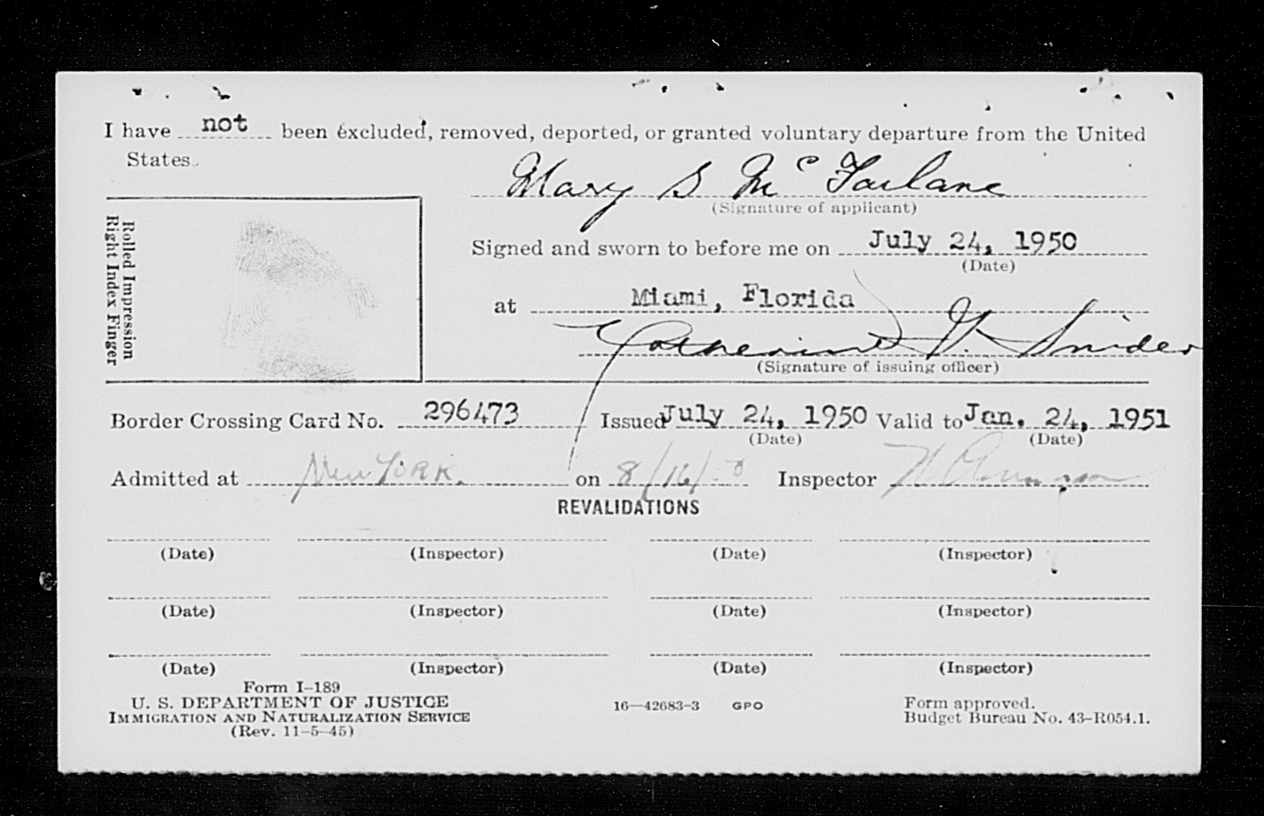 I have not been excluded, removed, deported, or granted voluntary departure from the United
States.
Mary S McFarlane
(Signature of applicant)
Rolled Impression
Right Index Finger
Signed and sworn to before me on July 24, 1950
(Date)
at Miami, Florida
Catherine W. Snider
(Signature of issuing officer)
Border Crossing Card No. 296473 Issued July 24, 1950 Valid to Jan. 24, 1951
(Date) (Date)
Admitted at New York. on 8/16/ Inspector
REVALIDATIONS
(Date) (Inspector) (Date) (Inspector)
(Date) (Inspector) (Date) (Inspector)
(Date) (Inspector) (Date) (Inspector)
Form I-189
U. S. DEPARTMENT OF JUSTICE
IMMIGRATION AND NATURALIZATION SERVICE
(Rev. 11-5-45)
16—42683-3 GPO
Form approved.
Budget Bureau No. 43-R054.1.